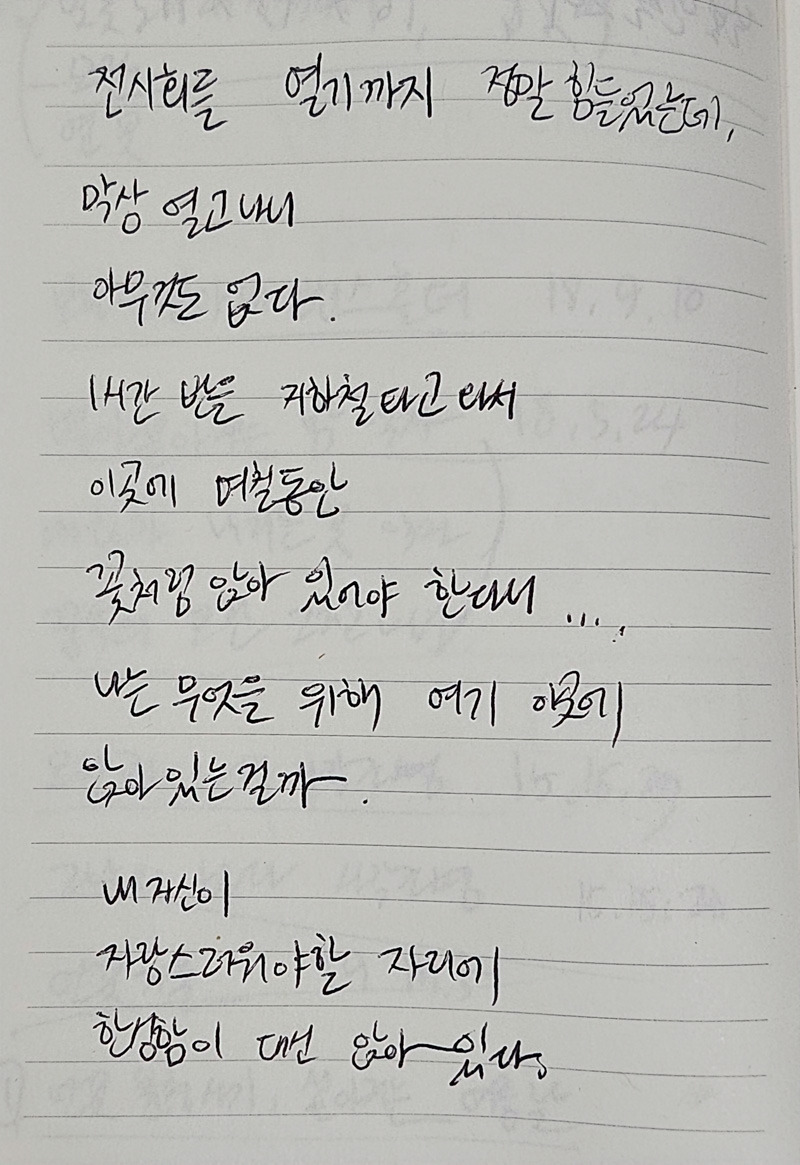 전시회를 열기까지 정말 힘들었는데,
막상 열고나니
아무것도 없다.
1시간 반을 지하철타고 와서
이곳에 며칠동안
꽃처럼 앉아 있어야 한다니 ....
나는 무엇을 위해 여기 이곳에
앉아 있는걸까.
내 자신이
자랑스러워야할 자리에
한심함이 대신 앉아 있다.